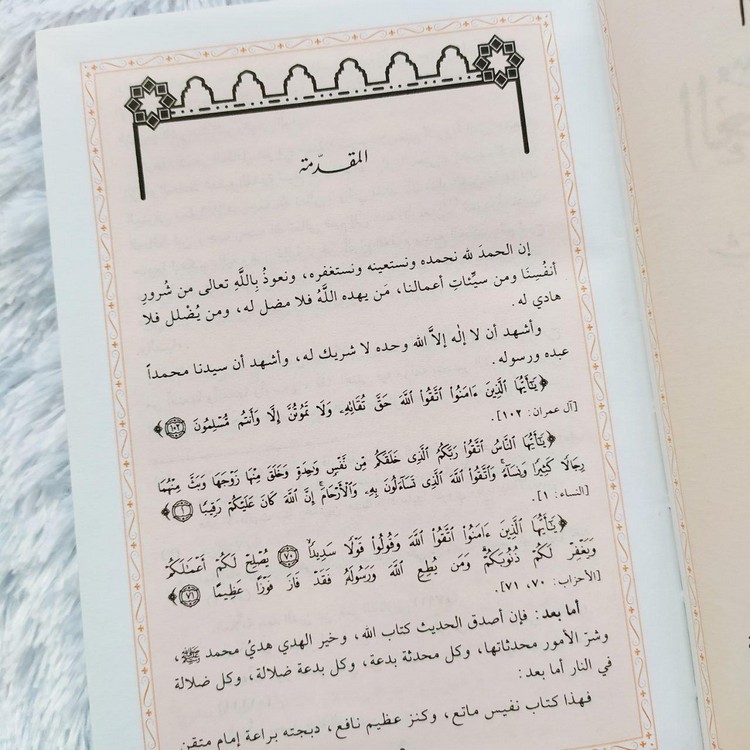 المقدّمة
إن الحمدَ لله نحمده ونستعينه ونستغفره، ونعوذُ بِاللَّهِ تعالى من شُرورِ
أنفُسِنَا ومن سيِّئاتِ أعمالنا، مَن يهده اللَّهُ فلا مضل له، ومن يُضْلل فلا
هادي له.
وأشهد أن لا إله إلاَّ الله وحده لا شريك له، وأشهد أن سيدنا محمداً
عبده ورسوله.
﴿يَٰٓأَيُّهَا الَّذِينَ ءَامَنُوا۟ اتَّقُوا۟ اللَّهَ حَقَّ تُقَاتِهِۦ وَلَا تَمُوتُنَّ إِلَّا وَأَنتُم مُّسْلِمُونَ ١٠٢﴾
[آل عمران: ١٠٢].
﴿يَٰٓأَيُّهَا النَّاسُ اتَّقُوا۟ رَبَّكُمُ الَّذِى خَلَقَكُم مِّن نَّفْسٍ وَٰحِدَةٍ وَخَلَقَ مِنْهَا زَوْجَهَا وَبَثَّ مِنْهُمَا
رِجَالًا كَثِيرًا وَنِسَآءً ۚ وَاتَّقُوا۟ اللَّهَ الَّذِى تَسَآءَلُونَ بِهِۦ وَالْأَرْحَامَ ۚ إِنَّ اللَّهَ كَانَ عَلَيْكُمْ رَقِيبًا ١﴾
[النساء: ١].
﴿يَٰٓأَيُّهَا الَّذِينَ ءَامَنُوا۟ اتَّقُوا۟ اللَّهَ وَقُولُوا۟ قَوْلًا سَدِيدًا ٧٠ يُصْلِحْ لَكُمْ أَعْمَٰلَكُمْ
وَيَغْفِرْ لَكُمْ ذُنُوبَكُمْ ۗ وَمَن يُطِعِ اللَّهَ وَرَسُولَهُۥ فَقَدْ فَازَ فَوْزًا عَظِيمًا ٧١﴾
[الأحزاب: ٧٠، ٧١].
أما بعد: فإن أصدق الحديث كتاب الله، وخير الهدي هديُ محمد ﷺ،
وشرّ الأمور محدثاتها، وكل محدثة بدعة، وكل بدعة ضلالة، وكل ضلالة
في النار أما بعد:
فهذا كتاب نفيس ماتع، وكنز عظيم نافع، دبجته براعة إمام متقن